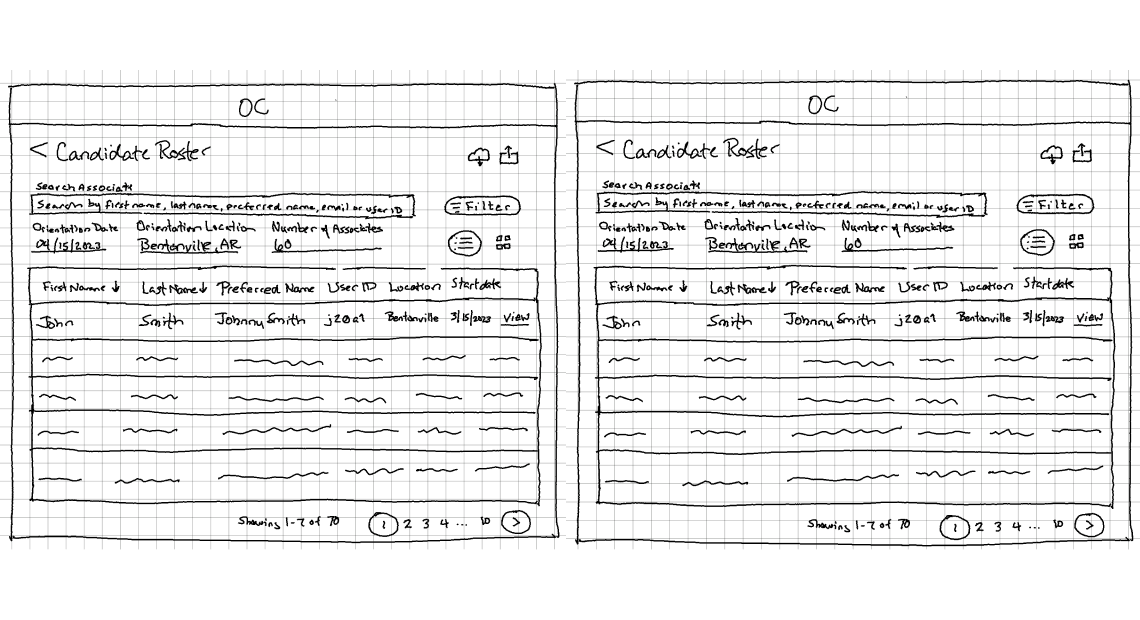 OC
< Candidate Roster
Search Associate
Search by first name, last name, preferred name, email or user ID
Filter
Orientation Date Orientation Location Number of Associates
04/15/2023 Bentonville, AR 60
First Name ↓ Last Name ↓ Preferred Name User ID Location Start date
John Smith Johnny Smith j20a1 Bentonville 3/15/2023 View
Showing 1-7 of 70 1 2 3 4 ... 10 >
OC
< Candidate Roster
Search Associate
Search by first name, last name, preferred name, email or user ID
Filter
Orientation Date Orientation Location Number of Associates
04/15/2023 Bentonville, AR 60
First Name ↓ Last Name ↓ Preferred Name User ID Location Start date
John Smith Johnny Smith j20a1 Bentonville 3/15/2023 View
Showing 1-7 of 70 1 2 3 4 ... 10 >